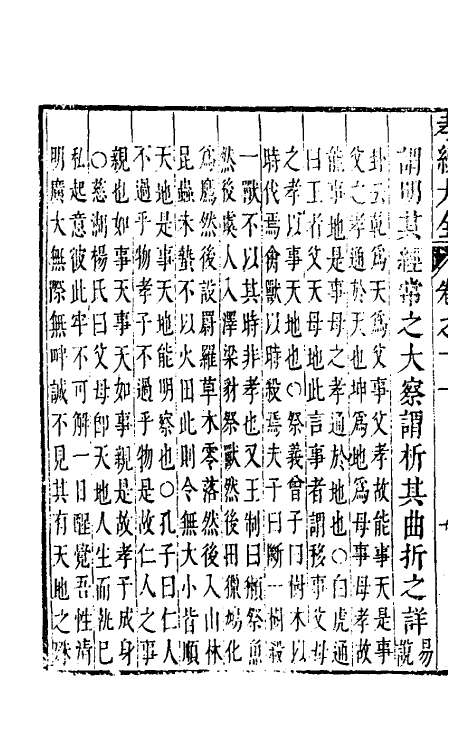 孝經大全 卷之十一
謂明其經常之大察謂析其曲折之詳易說
卦云乾爲天爲父事父孝故能事天是事
父之孝通於天也坤爲地爲母事母孝故
能事地是事母之孝通於地也○白虎通
曰王者父天母地此言事者謂移事父母
之孝以事天地也○祭義曾子曰樹木以
時伐焉禽獸以時殺焉夫子曰斷一樹殺
一獸不以其時非孝也又王制曰獺祭魚
然後虞人入澤梁豺祭獸然後田獵鳩化
爲鷹然後設罻羅草木零落然後入山林
昆蟲未蟄不以火田此則令無大小皆順
天地是事天地能明察也○孔子曰仁人
不過乎物孝子不過乎物是故仁人之事
親也如事天事天如事親是故孝子成身
○慈湖楊氏曰父母卽天地人生而私已
私起意彼此牢不可解一日醒覺吾性清
明廣大無際無畔誠不見其有天地之殊